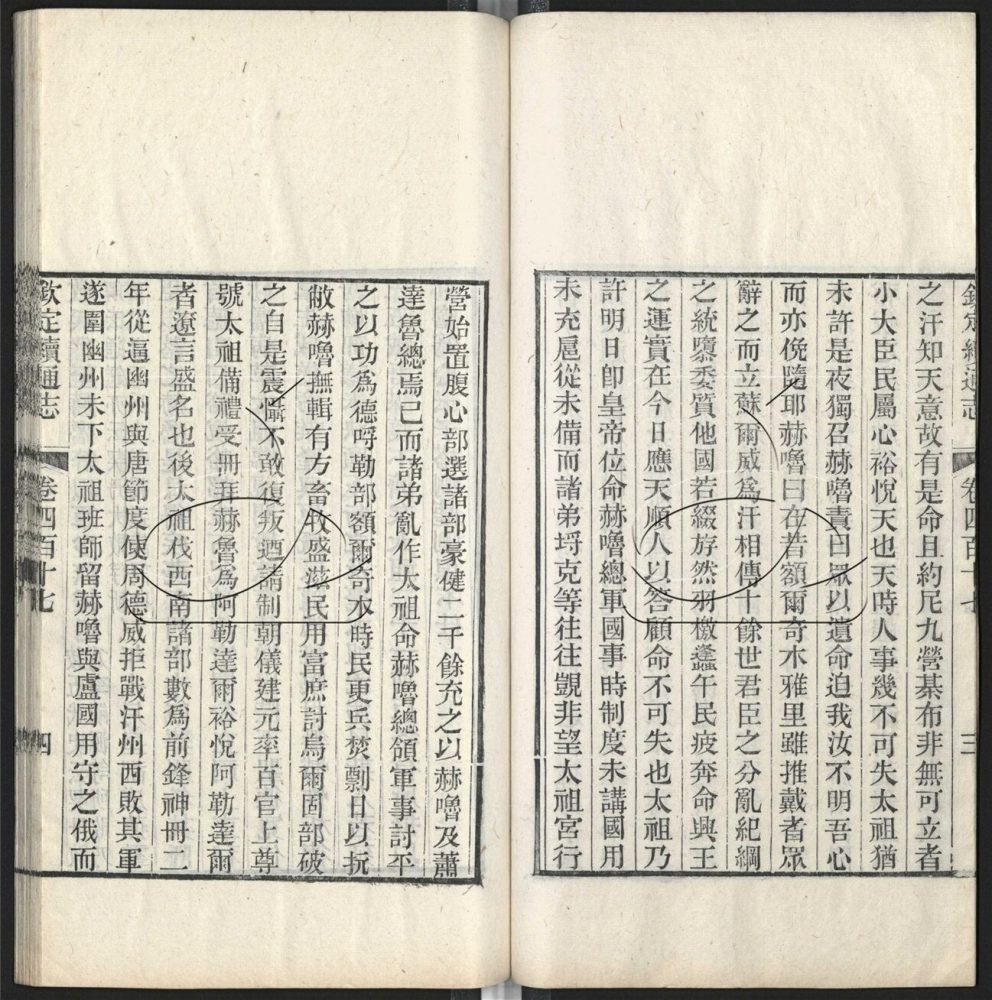 欽定續通志 卷四百十七 三
之汗知天意故有是命且約尼九營棊布非無可立者
小大臣民屬心裕悅天也天時人事幾不可失太祖猶
未許是夜獨召赫嚕責曰眾以遺命迫我汝不明吾心
而亦俛隨耶赫嚕曰在昔額爾奇木雅里雖推戴者眾
辭之而立蘇爾威為汗相傳十餘世君臣之分亂紀綱
之統隳委質他國若綴斿然羽檄蠭午民疲奔命興王
之運實在今日應天順人以答顧命不可失也太祖乃
許明日卽皇帝位命赫嚕總軍國事時制度未講國用
未充扈從未備而諸弟埒克等往往覬非望太祖宮行
營始置腹心部選諸部豪健二千餘充之以赫嚕及蕭
達魯總焉已而諸弟亂作太祖命赫嚕總領軍事討平
之以功為德呀勒部額爾奇木時民更兵焚剽日以抏
敝赫嚕撫輯有方畜牧盛滋民用富庶討烏爾固部破
之自是震懾不敢復叛迺請制朝儀建元率百官上尊
號太祖備禮受冊拜赫魯為阿勒達爾裕悅阿勒達爾
者遼言盛名也後太祖伐西南諸部數為前鋒神冊二
年從逼幽州與唐節度使周德威拒戰汗州西敗其軍
遂圍幽州未下太祖班師留赫嚕與盧國用守之俄而
欽定續通志 卷四百十七 四